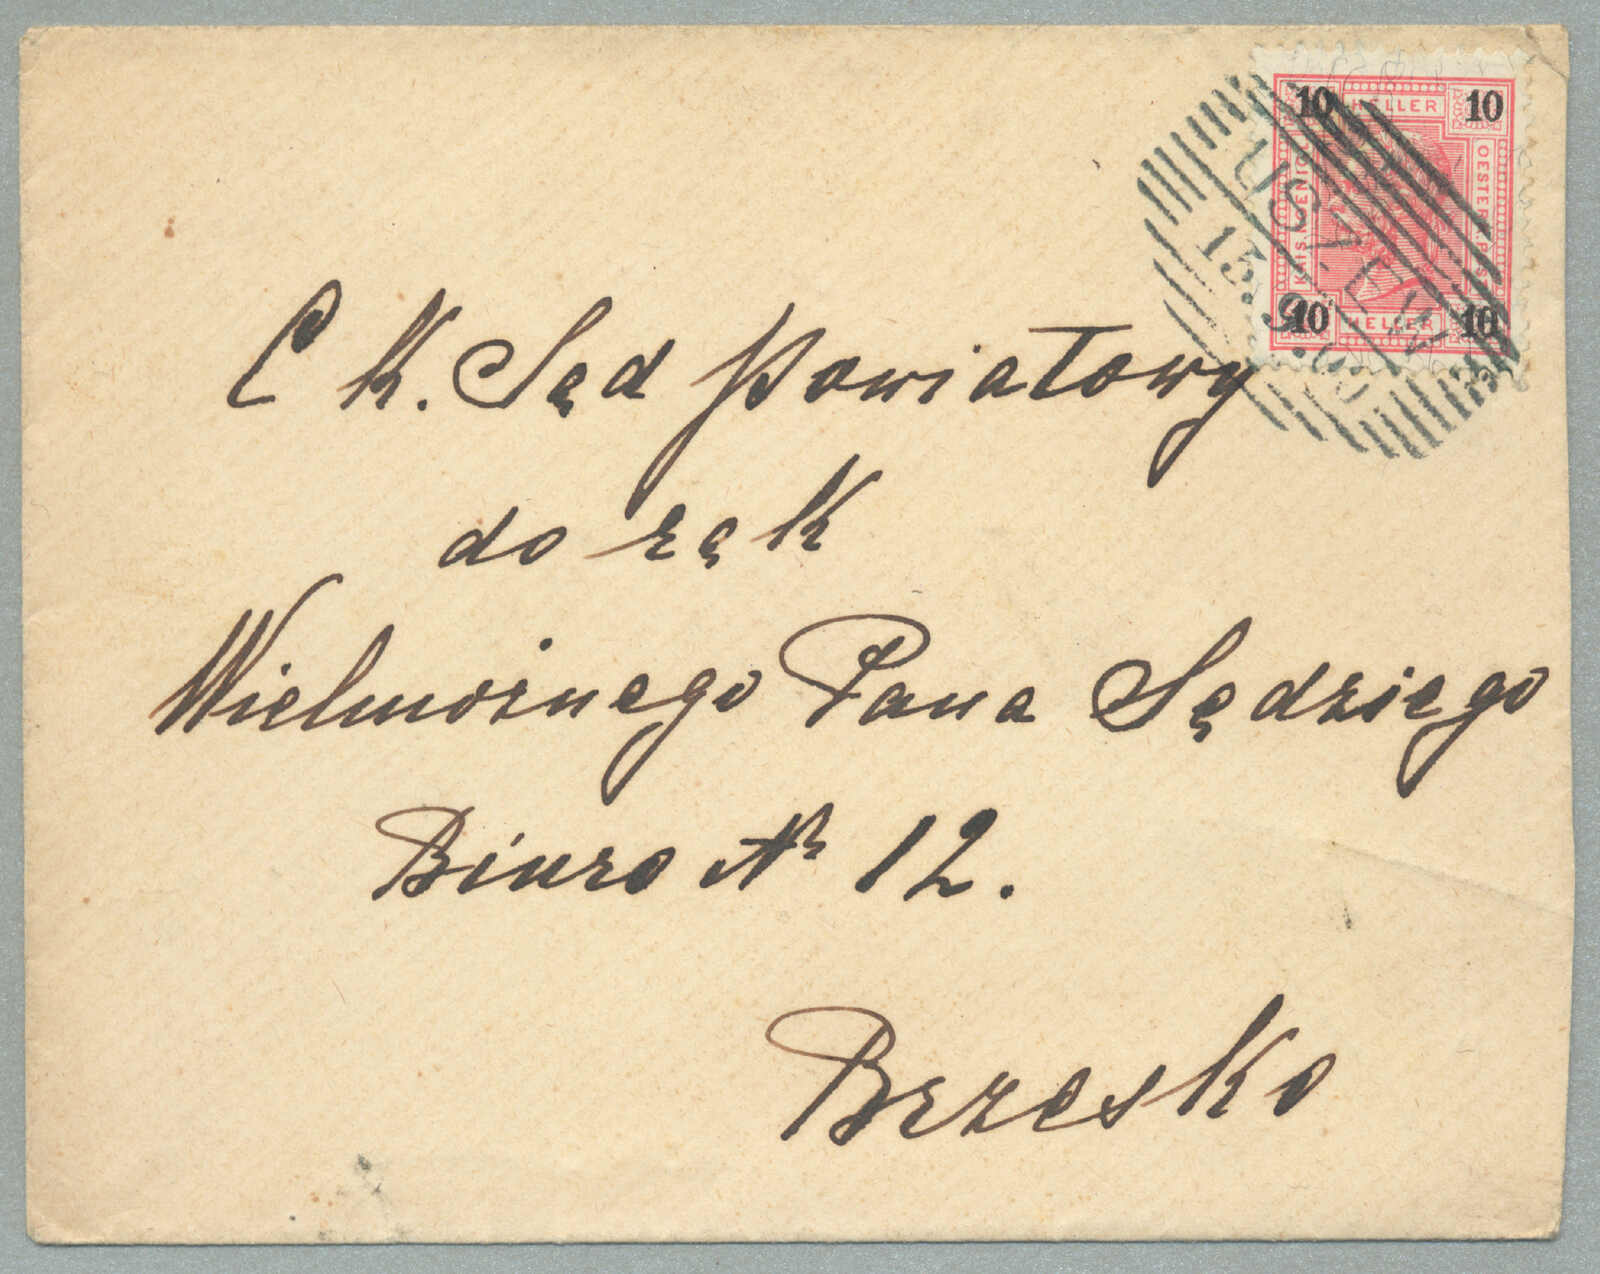 10 HELLER 10
KAIS. KOENIGL.
OESTERR. POST
10 HELLER 10
13. 9.
C K. Sąd powiatowy
do rąk
Wielmożnego Pana Sędziego
Biuro Nr 12.
Brzesko